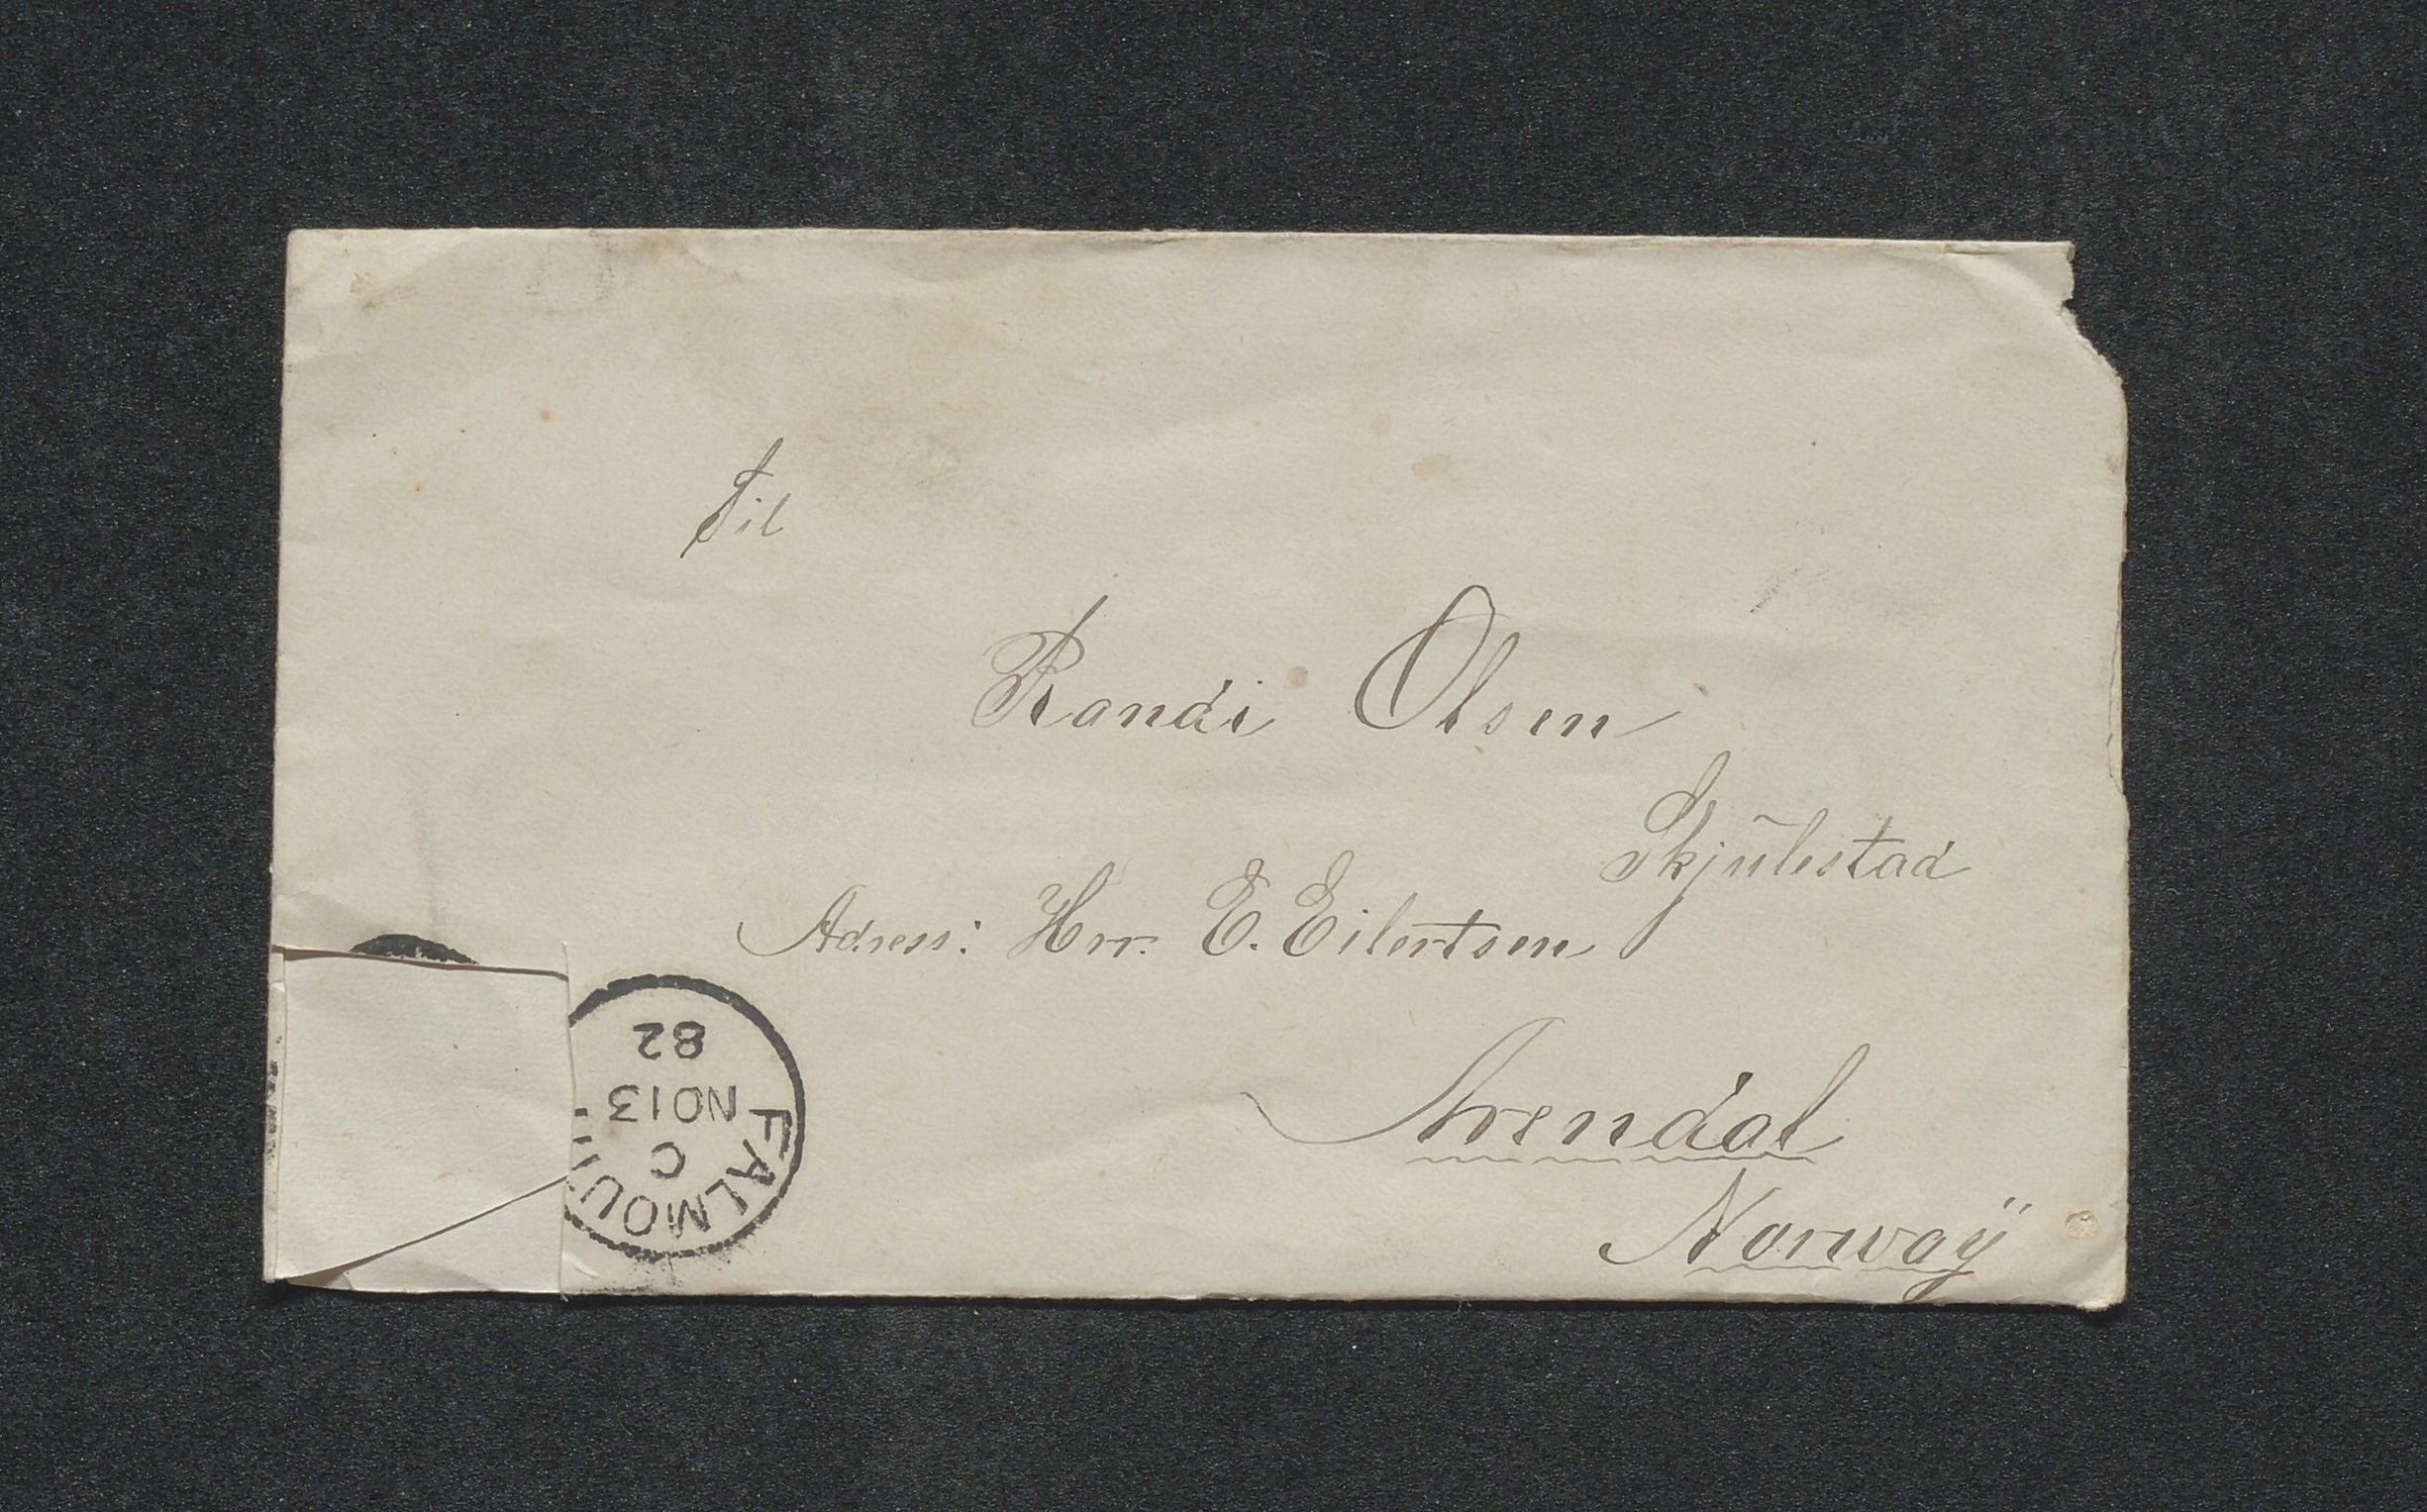 Til
Randi Olsen
Skjülestad
Adress: Hrr. E. Eilertsen
Arendal
Norwaÿ
FALMOU
C
NO 13
82